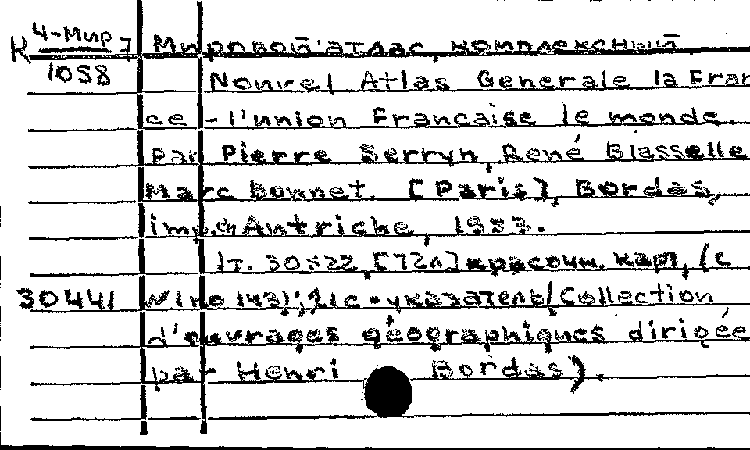 К 4-Мир 7 Мировой атлас, комплексный.
1058 Nouvel Atlas Generale la Fran
ce - l'union Francaise le monde.
par Pierre Serryn, René Blasselle
Marc Bonnet. [Paris], Bordas,
imp. Autriche, 1953.
1т. 30х22, [72л] красочн. карт, (с
30441 N1 по 143); 21с. указатель/Collection
d'ouvrages géographiques dirigée
par Henri Bordas).